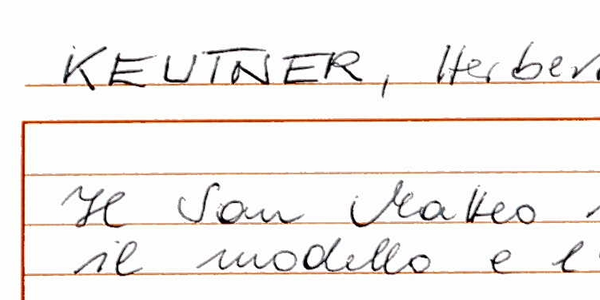 KEUTNER, Herber
Il San Matteo
il modello e l'